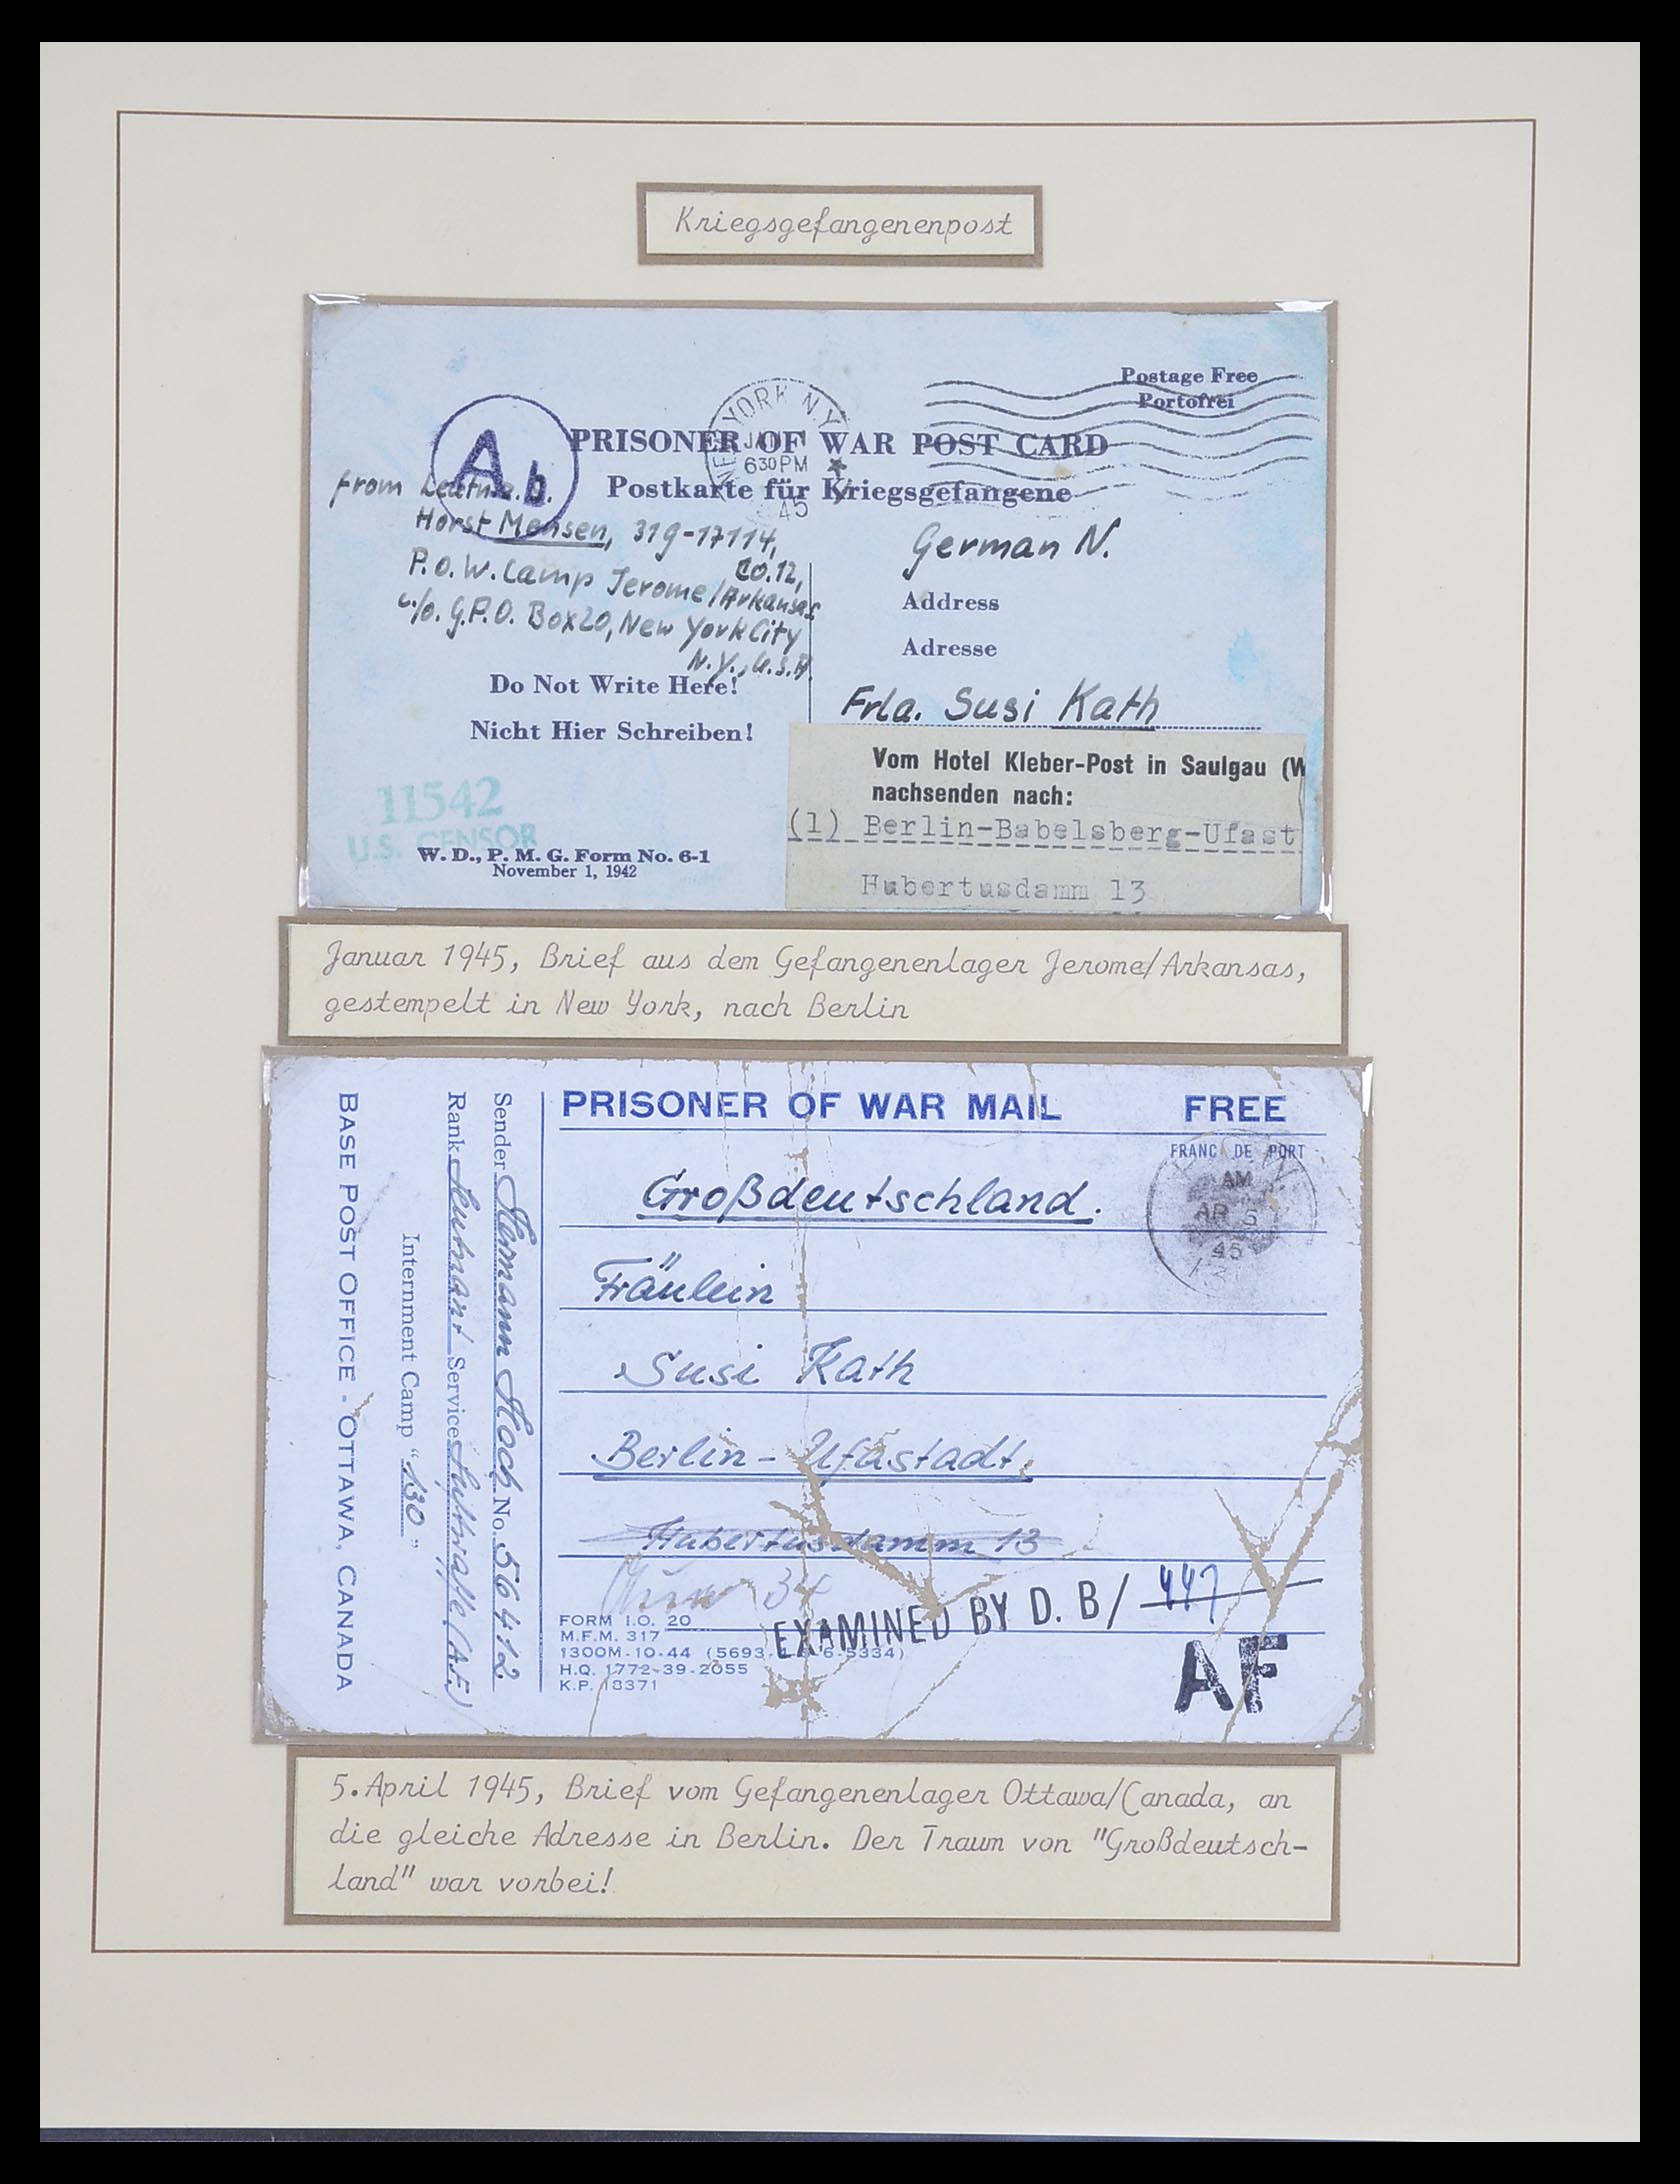 Kriegsgefangenenpost
Postage Free
Portofrei
YORK N.Y.
630 PM
45
Ab
PRISONER OF WAR POST CARD
Postkarte für Kriegsgefangene
from
Horst Mensen, 31g-17114,
Co. 12,
P.O.W. Camp Jerome/Arkansas
c/o. G.P.O. Box 20, New York City
N.Y., U.S.A.
Do Not Write Here!
Nicht Hier Schreiben!
11542
U.S. CENSOR
W. D., P. M. G. Form No. 6-1
November 1, 1942
German N.
Address
Adresse
Frla. Susi Kath
Vom Hotel Kleber-Post in Saulgau (W
nachsenden nach:
(1) Berlin-Babelsberg-Ufast
Hubertusdamm 13
Januar 1945, Brief aus dem Gefangenenlager Jerome/Arkansas,
gestempelt in New York, nach Berlin
PRISONER OF WAR MAIL FREE
FRANC DE PORT
AM
AP 5
45
Großdeutschland.
Fräulein
Susi Kath
Berlin-Ufastadt.
Hubertusdamm 13
FORM I.O. 20
M.F.M. 317
1300M-10-44 (5693 6-5334)
H.Q. 1772-39-2055
K.P. 18371
EXAMINED BY D. B/ 447
AF
Sender Hermann Koch No. 56412
Rank Leutnant Service Luftwaffe (A.F.)
Internment Camp "130"
BASE POST OFFICE - OTTAWA, CANADA
5. April 1945, Brief vom Gefangenenlager Ottawa/Canada, an
die gleiche Adresse in Berlin. Der Traum von "Großdeutsch-
land" war vorbei!